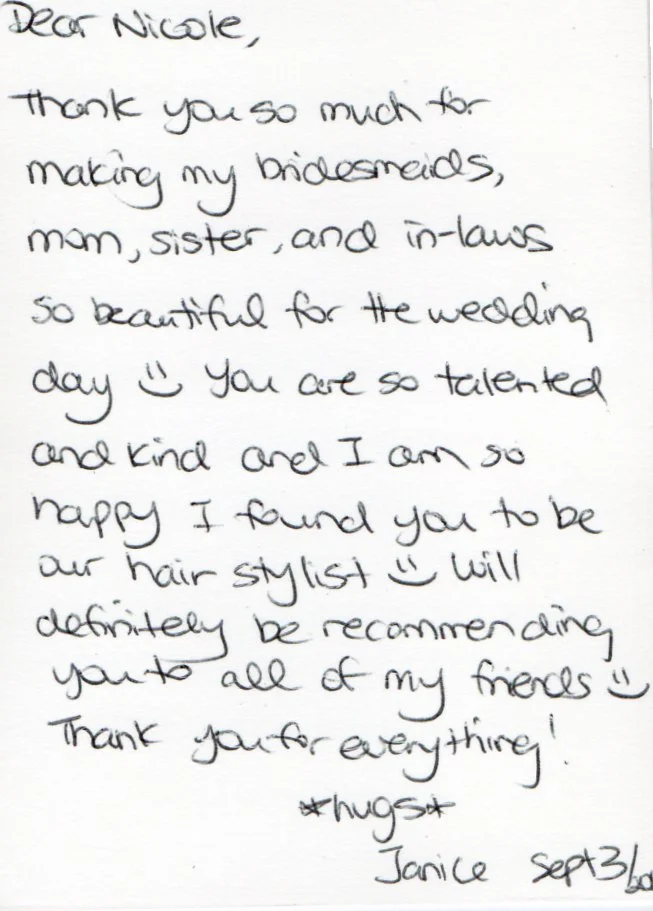 Dear Nicole,
Thank you so much for
making my bridesmaids,
mom, sister, and in-laws
so beautiful for the wedding
day :) You are so talented
and kind and I am so
happy I found you to be
our hair stylist :) Will
definitely be recommending
you to all of my friends :)
Thank you for everything!
*hugs*
Janice Sept 3/